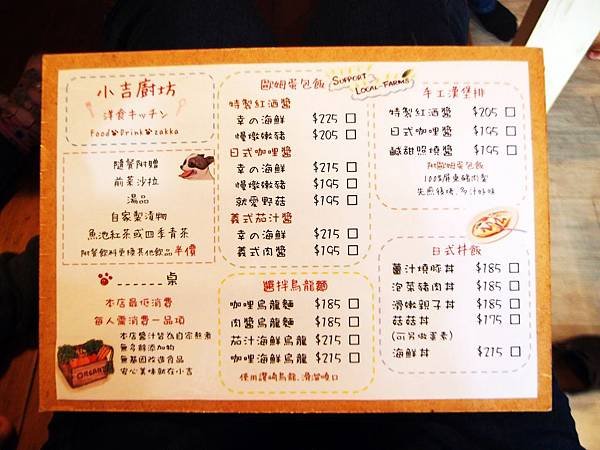 小吉廚坊
洋食キッチン
Food Drink zakka
隨餐附贈
前菜沙拉
湯品
自家製漬物
魚池紅茶或四季青茶
附餐飲料更換其他飲品半價
______桌
本店最低消費
每人需消費一品項
本店醬汁皆為自家熬煮
無多餘添加物
無基因改造食品
安心美味就在小吉
ORGANIC
歐姆蛋包飯
SUPPORT
LOCAL FARMS
特製紅酒醬
幸の海鮮 $225 □
慢燉嫩豬 $205 □
日式咖哩醬
幸の海鮮 $215 □
慢燉嫩豬 $195 □
就愛野菇 $195 □
義式茄汁醬
幸の海鮮 $215 □
義式肉醬 $195 □
醬拌烏龍麵
咖哩烏龍麵 $185 □
肉醬烏龍麵 $185 □
茄汁海鮮烏龍 $215 □
咖哩海鮮烏龍 $215 □
使用讚岐烏龍、滑溜順口
手工漢堡排
特製紅酒醬 $205 □
日式咖哩醬 $195 □
鹹甜照燒醬 $195 □
附歐姆蛋包飯
100%屏東豬肉製
先煎後烤、多汁好味
日式丼飯
薑汁燒豚丼 $185 □
泡菜豬肉丼 $185 □
滑嫩親子丼 $185 □
菇菇丼 $175 □
(可另做蛋素)
海鮮丼 $215 □